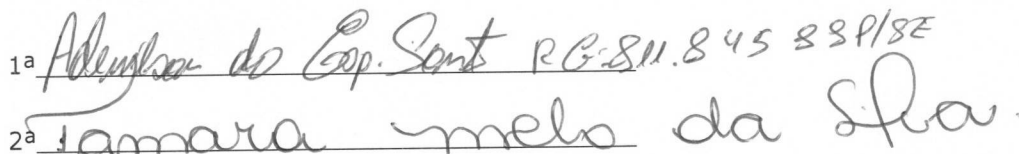 1ª Adenilson do Esp. Sant RG: 811.845 SSP/SE
2ª Tamara melo da Silva